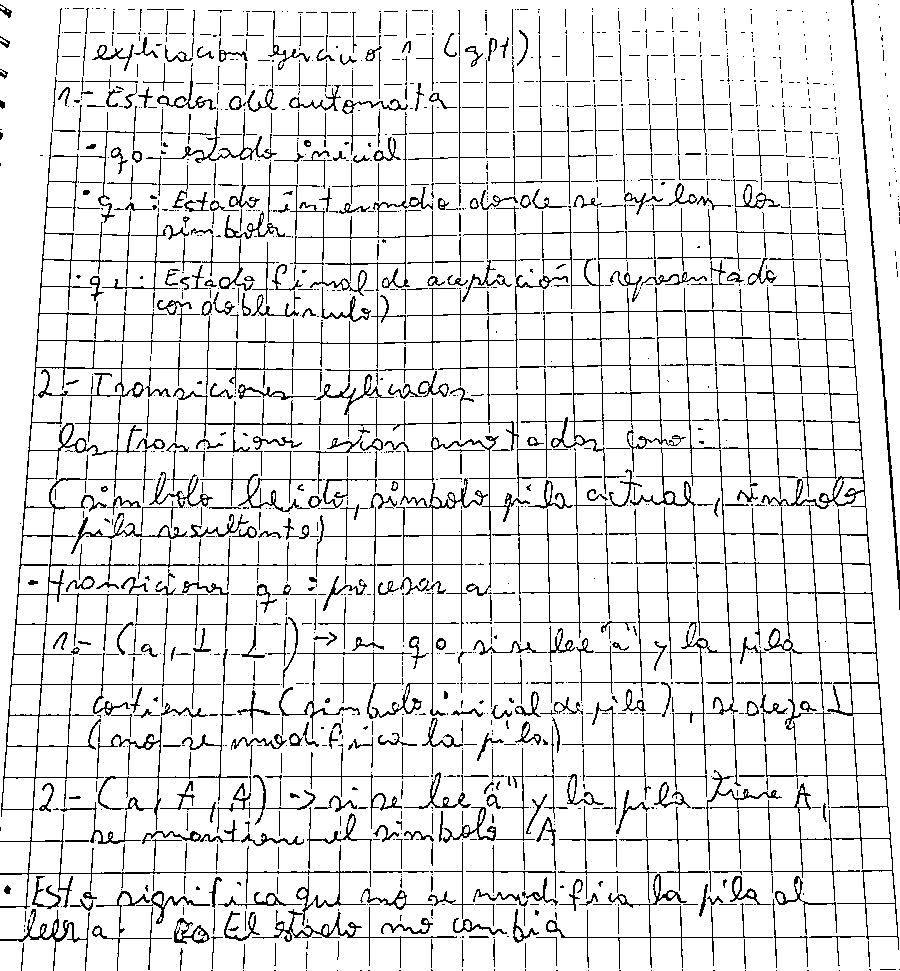 explicación ejercicio 1 (gpt)
1.- Estados del automata
- q0: estado inicial
· q1: Estado intermedio donde se apilan los
simbolos
· q2: Estado final de aceptación (representado
con doble circulo)
2.- Transiciones explicadas
las transiciones están anotadas como:
(simbolo leido, simbolo pila actual, simbolo
pila resultante)
- transiciones q0: procesar a
1.- (a, ⊥, ⊥) → en q0, si se lee "a" y la pila
contiene ⊥ (simbolo inicial de pila), se deja ⊥
(no se modifica la pila)
2- (a, A, A) → si se lee "a" y la pila tiene A,
se mantiene el simbolo A
· Esto significa que no se modifica la pila al
leer a. El estado no cambia